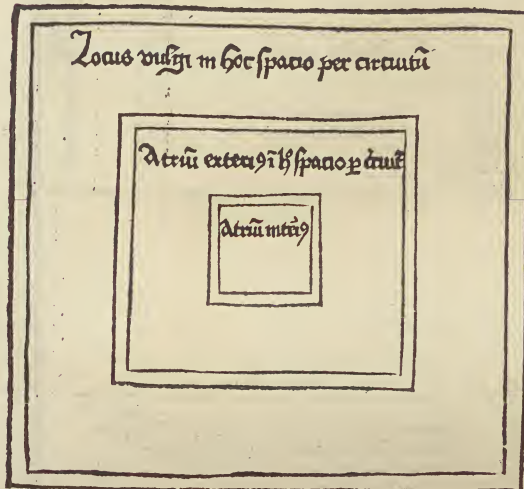 Locus vulgi in hoc spacio per circuitū
Atriū exteriꝰ ī h̓ spacio ꝑ ċcuitū
Atriū interiꝰ